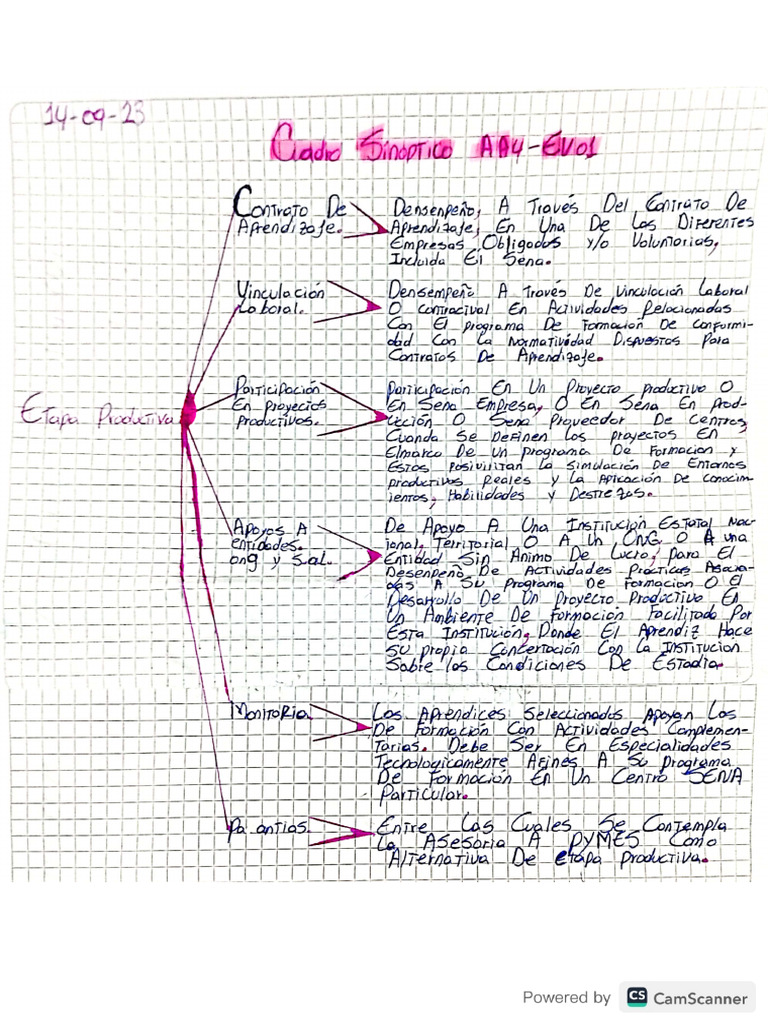 14-09-23
Cuadro Sinoptico AA4-EV01
Etapa Productiva
Contrato De
Aprendizaje.
Densenpeño, A Través Del Contrato De
Aprendizaje, En Una De Las Diferentes
Empresas Obligados y/o Voluntarias,
Incluida El Sena.
Vinculación
Laboral.
Densempeño A Través De Vinculación Laboral
O contractual En Actividades Relacionadas
Con El programa De Formación De conformi-
dad Con La Normatividad Dispuestos Para
Contratos De Aprendizaje.
Participación
En proyectos
Productivos.
Participación En Un Proyecto productivo O
En Sena Empresa, O En Sena En Prod-
ucción O Sena Proveedor De Centros,
Cuando Se Definen los proyectos En
Elmarco De un programa De Formacion y
Estos posivilitan la Simulación De Entornos
productivos Reales y la Aplicación De conocim-
ientos, Habilidades y Destrezas.
Apoyos A
entidades.
ong y S.a.l.
De Apoyo A Una Institución Estatal Nac-
ional, Territorial O A Un ONG O A una
Entidad Sin Animo De Lucro, para El
Desenpeño De Actividades Prácticas Asocia-
das A Su Programa De Formacion O El
Desarrollo De Un Proyecto Productivo En
Un Ambiente De Formación Facilitado Por
Esta Institución, Donde El Aprendiz Hace
Su propia Concertación Con la Institucion
Sobre las Condiciones De Estadia.
Monitoria
Los Aprendices Seleccionados Apoyan Los
De Formación Con Actividades Complemen-
tarias. Debe Ser En Especialidades
Tecnologicamente Afines A Su programa
De Formación En Un Centro SENA
Particular.
Pa antias.
Entre Las Cuales Se Contempla
La Asesoria A PYMES Como
Alternativa De etapa Productiva.
Powered by CS CamScanner